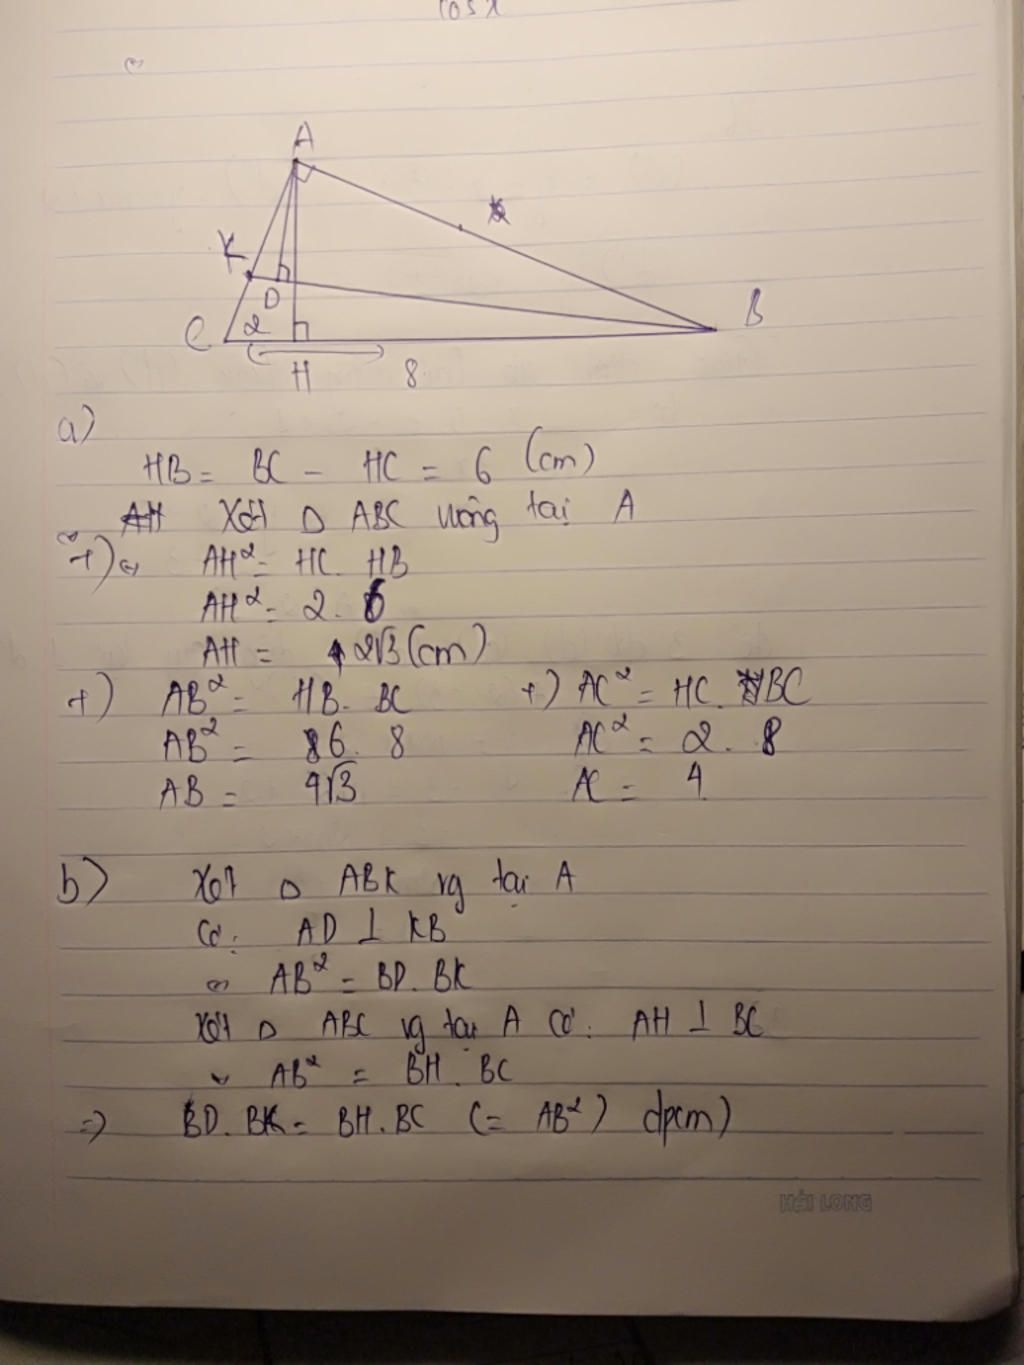 cosx
A
K
D
B
C 2
H 8
a)
HB = BC - HC = 6 (cm)
AH Xét Δ ABC vuông tại A
+) AH² = HC. HB
AH² = 2. 6
AH = 2√3 (cm)
+) AB² = HB. BC +) AC² = HC. BC
AB² = 6. 8 AC² = 2. 8
AB = 4√3 AC = 4
b) Xét Δ ABK vg tại A
Có: AD ⊥ KB
AB² = BD. BK
Xét Δ ABC vg tại A Có: AH ⊥ BC
AB² = BH. BC
=> BD. BK = BH. BC (= AB²) đpcm)
HẢI LONG